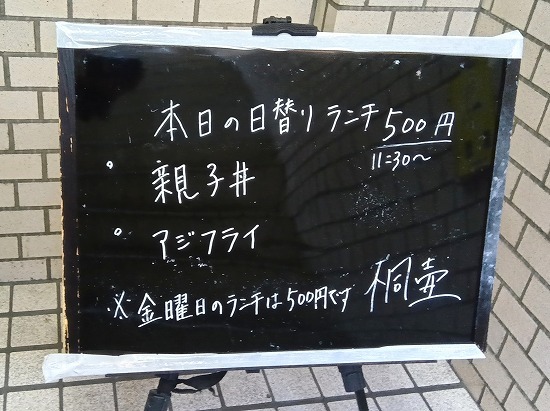 本日の日替りランチ 500円
11:30〜
。親子丼
。アジフライ
※金曜日のランチは500円です 桐壷